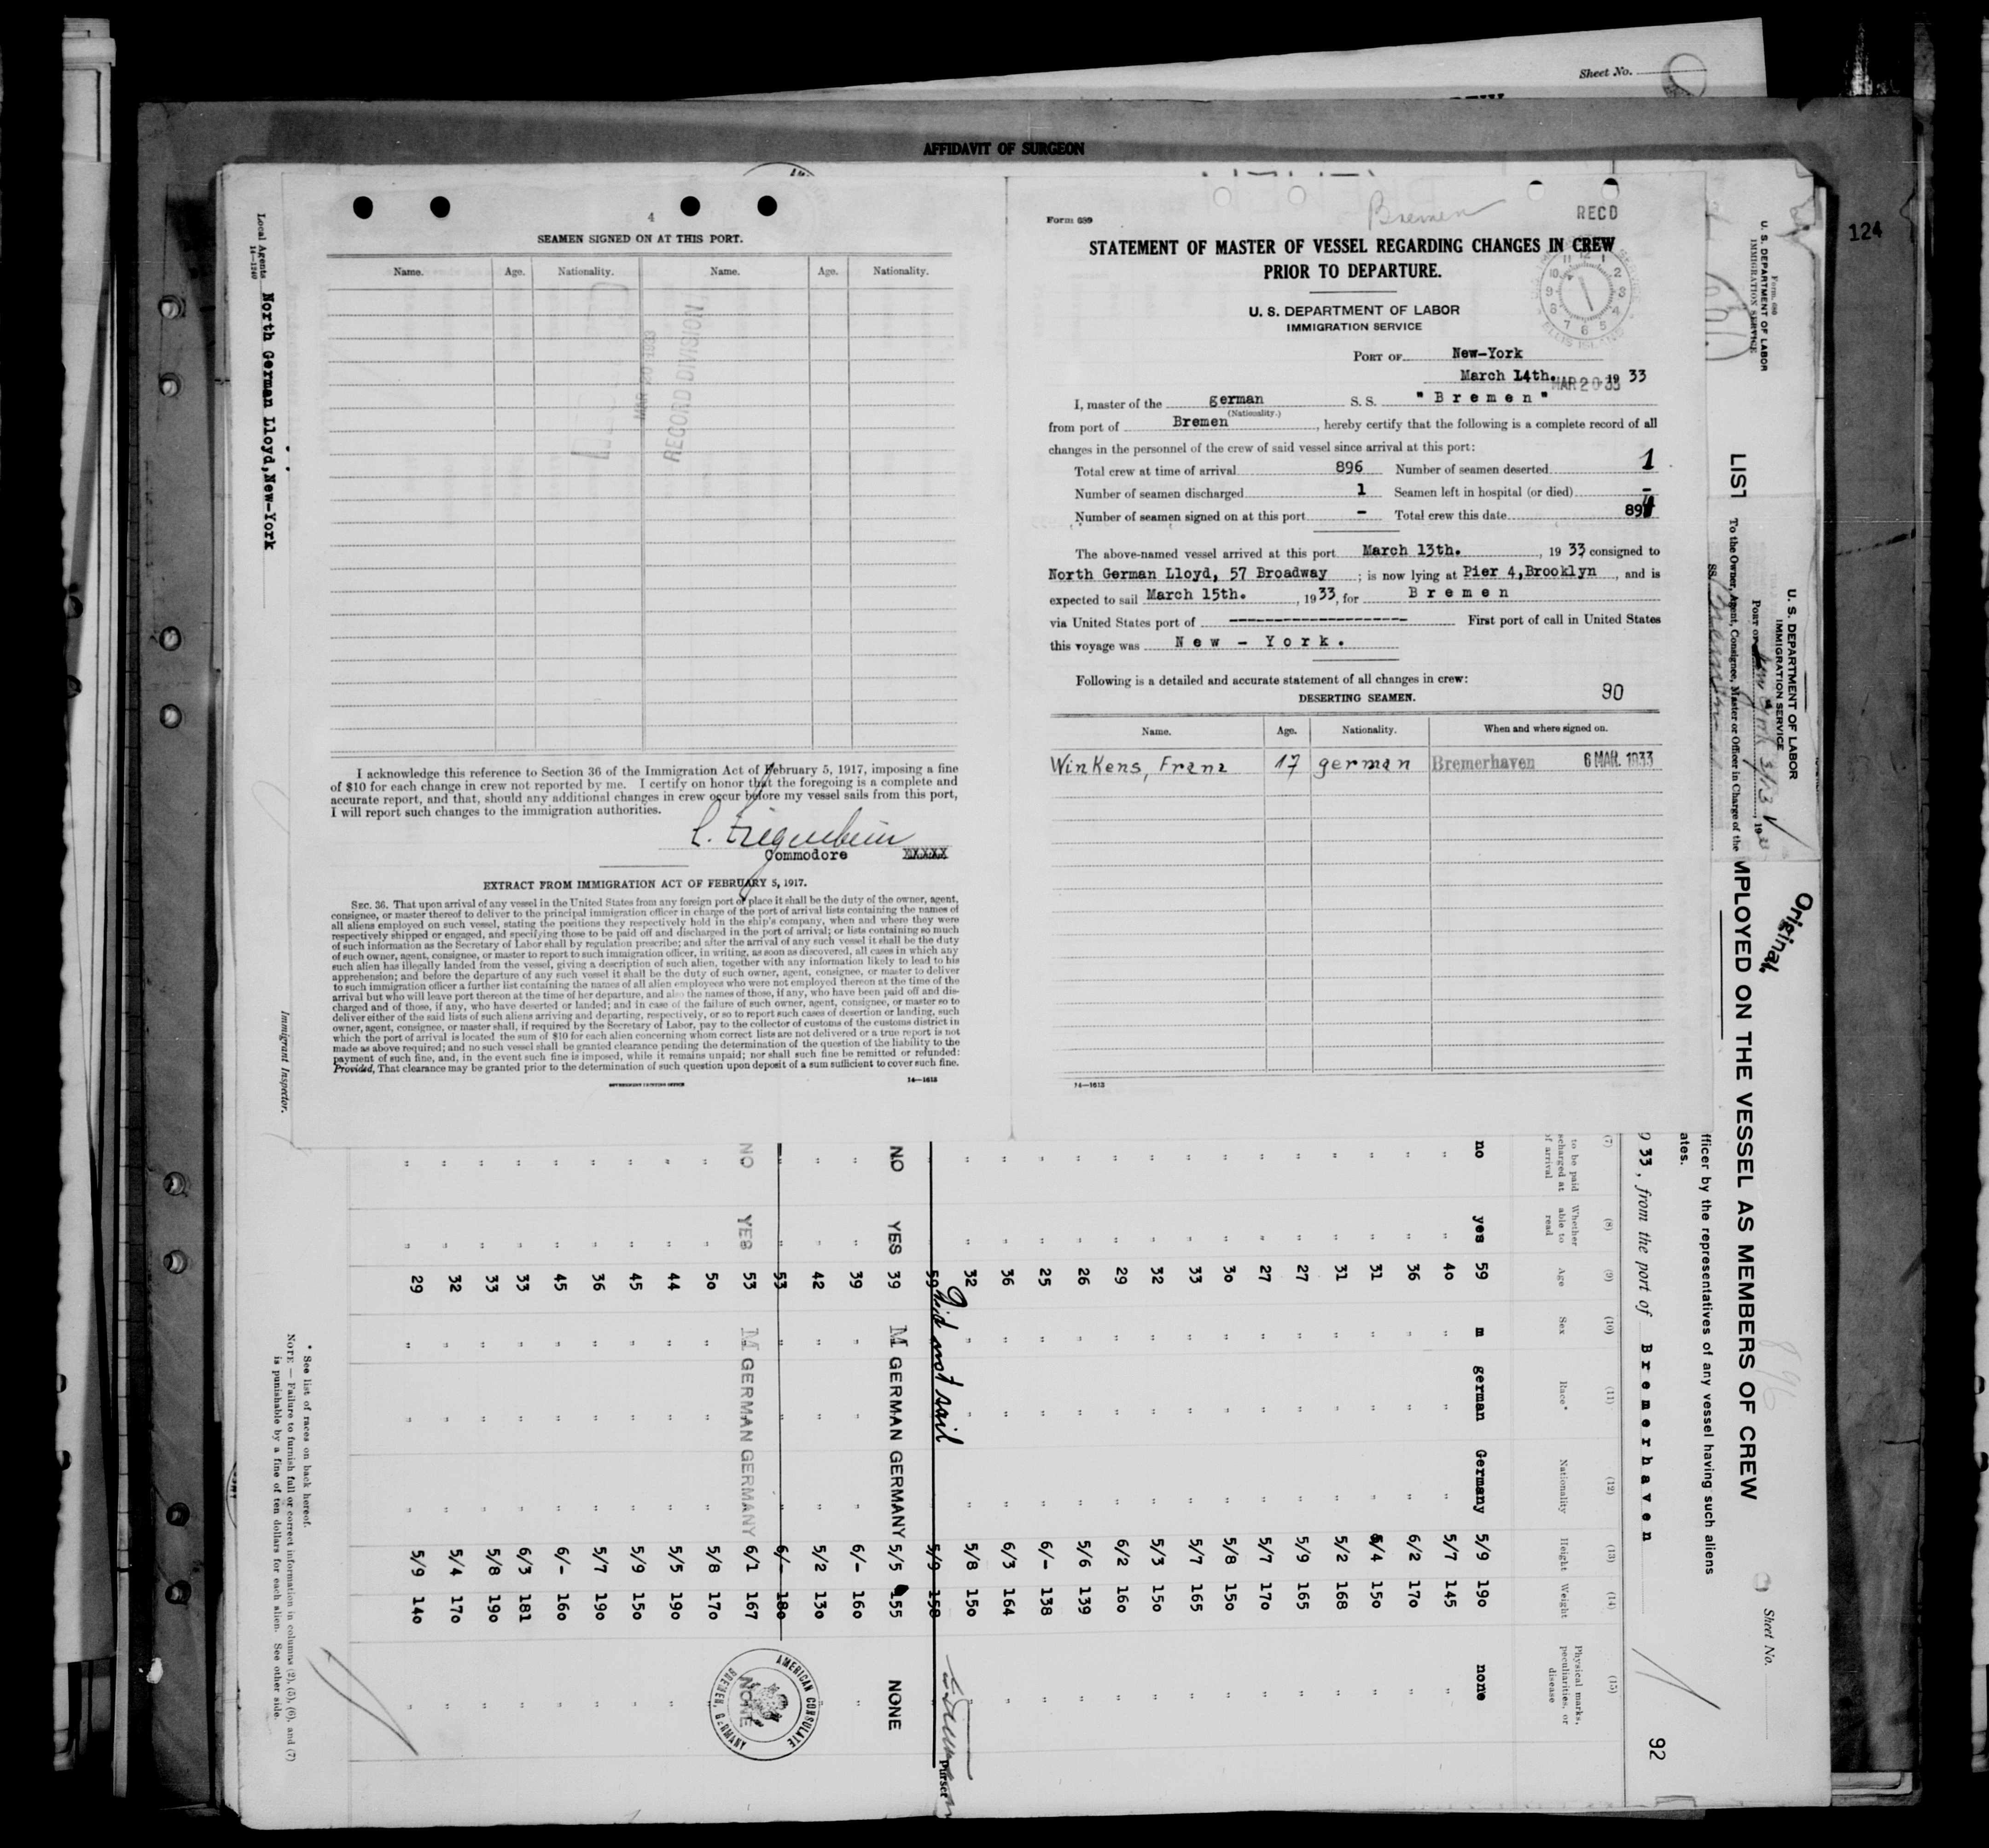 Sheet No.
AFFIDAVIT OF SURGEON
124
4
SEAMEN SIGNED ON AT THIS PORT.
Name. Age. Nationality. Name. Age. Nationality.
MAR 20 1933
RECORD DIVISION
I acknowledge this reference to Section 36 of the Immigration Act of February 5, 1917, imposing a fine
of $10 for each change in crew not reported by me. I certify on honor that the foregoing is a complete and
accurate report, and that, should any additional changes in crew occur before my vessel sails from this port,
I will report such changes to the immigration authorities.
Commodore
EXTRACT FROM IMMIGRATION ACT OF FEBRUARY 5, 1917.
SEC. 36. That upon arrival of any vessel in the United States from any foreign port or place it shall be the duty of the owner, agent,
consignee, or master thereof to deliver to the principal immigration officer in charge of the port of arrival lists containing the names of
all aliens employed on such vessel, stating the positions they respectively hold in the ship's company, when and where they were
respectively shipped or engaged, and specifying those to be paid off and discharged in the port of arrival; or lists containing so much
of such information as the Secretary of Labor shall by regulation prescribe; and after the arrival of any such vessel it shall be the duty
of such owner, agent, consignee, or master to report to such immigration officer, in writing, as soon as discovered, all cases in which any
such alien has illegally landed from the vessel, giving a description of such alien, together with any information likely to lead to his
apprehension; and before the departure of any such vessel it shall be the duty of such owner, agent, consignee, or master to deliver
to such immigration officer a further list containing the names of all alien employees who were not employed thereon at the time of the
arrival but who will leave port thereon at the time of her departure, and also the names of those, if any, who have been paid off and dis-
charged and of those, if any, who have deserted or landed; and in case of the failure of such owner, agent, consignee, or master so to
deliver either of the said lists of such aliens arriving and departing, respectively, or so to report such cases of desertion or landing, such
owner, agent, consignee, or master shall, if required by the Secretary of Labor, pay to the collector of customs of the customs district in
which the port of arrival is located the sum of $10 for each alien concerning whom correct lists are not delivered or a true report is not
made as above required; and no such vessel shall be granted clearance pending the determination of the question of the liability to the
payment of such fine, and, in the event such fine is imposed, while it remains unpaid; nor shall such fine be remitted or refunded:
Provided, That clearance may be granted prior to the determination of such question upon deposit of a sum sufficient to cover such fine.
GOVERNMENT PRINTING OFFICE 14—1613
Form 689 Bremen RECD
STATEMENT OF MASTER OF VESSEL REGARDING CHANGES IN CREW
PRIOR TO DEPARTURE.
U. S. DEPARTMENT OF LABOR
IMMIGRATION SERVICE
ELLIS ISLAND
PORT OF New-York
March 14th. 19 33
MAR 20 33
I, master of the german S. S. "Bremen"
(Nationality.)
from port of Bremen, hereby certify that the following is a complete record of all
changes in the personnel of the crew of said vessel since arrival at this port:
Total crew at time of arrival 896 Number of seamen deserted 1
Number of seamen discharged 1 Seamen left in hospital (or died) -
Number of seamen signed on at this port - Total crew this date 894
The above-named vessel arrived at this port March 13th., 19 33 consigned to
North German Lloyd, 57 Broadway; is now lying at Pier 4,Brooklyn, and is
expected to sail March 15th., 1933, for Bremen
via United States port of ------------------- First port of call in United States
this voyage was New - York.
Following is a detailed and accurate statement of all changes in crew:
90
DESERTING SEAMEN.
Name. Age. Nationality. When and where signed on.
Winkens, Franz 17 german Bremerhaven 6 MAR. 1933
14—1613
Local Agents North German Lloyd,New-York
14—1240
Immigrant Inspector.
Form 680
U. S. DEPARTMENT OF LABOR
IMMIGRATION SERVICE
U. S. DEPARTMENT OF LABOR
IMMIGRATION SERVICE
PORT OF New York 3/13, 19
Original
Sheet No.
LIST
MPLOYED ON THE VESSEL AS MEMBERS OF CREW
896
To the Owner, Agent, Consignee, Master or Officer in Charge of the
SS. Bremen
fficer by the representatives of any vessel having such aliens
ates.
9 33, from the port of Bremerhaven
92
(7) (8) (9) (10) (11) (12) (13) (14) (15)
to be paid
scharged at
of arrival
Whether
able to
read
Age Sex Race* Nationality Height Weight
Physical marks,
peculiarities, or
disease
no yes 59 m german Germany 5/9 190 none
" " 40 " " " 5/7 145 "
" " 36 " " " 6/2 170 "
" " 31 " " " 5/4 150 "
" " 31 " " " 5/2 168 "
" " 27 " " " 5/9 165 "
" " 27 " " " 5/7 170 "
" " 30 " " " 5/8 150 "
" " 33 " " " 5/7 165 "
" " 32 " " " 5/3 150 "
" " 29 " " " 6/2 160 "
" " 26 " " " 5/6 139 "
" " 25 " " " 6/- 138 "
" " 36 " " " 6/3 164 "
" " 32 " " " 5/8 150 "
" " 59 " " " 5/9 158 "
did not sail
Purser
NO YES 39 M GERMAN GERMANY 5/5 155 NONE
" " 39 " " " 6/- 160 "
" " 42 " " " 5/2 130 "
" " 53 " " " 6/- 180
NO YES 53 M GERMAN GERMANY 6/1 167 NONE
AMERICAN CONSULATE
BREMEN, GERMANY
" " 50 " " " 5/8 170 "
" " 44 " " " 5/5 190 "
" " 45 " " " 5/9 150 "
" " 36 " " " 5/7 190 "
" " 45 " " " 6/- 160 "
" " 33 " " " 6/3 181 "
" " 33 " " " 5/8 190 "
" " 32 " " " 5/4 170 "
" " 29 " " " 5/9 140 "
* See list of races on back hereof.
NOTE — Failure to furnish full or correct information in columns (2), (5), (6), and (7)
is punishable by a fine of ten dollars for each alien. See other side.